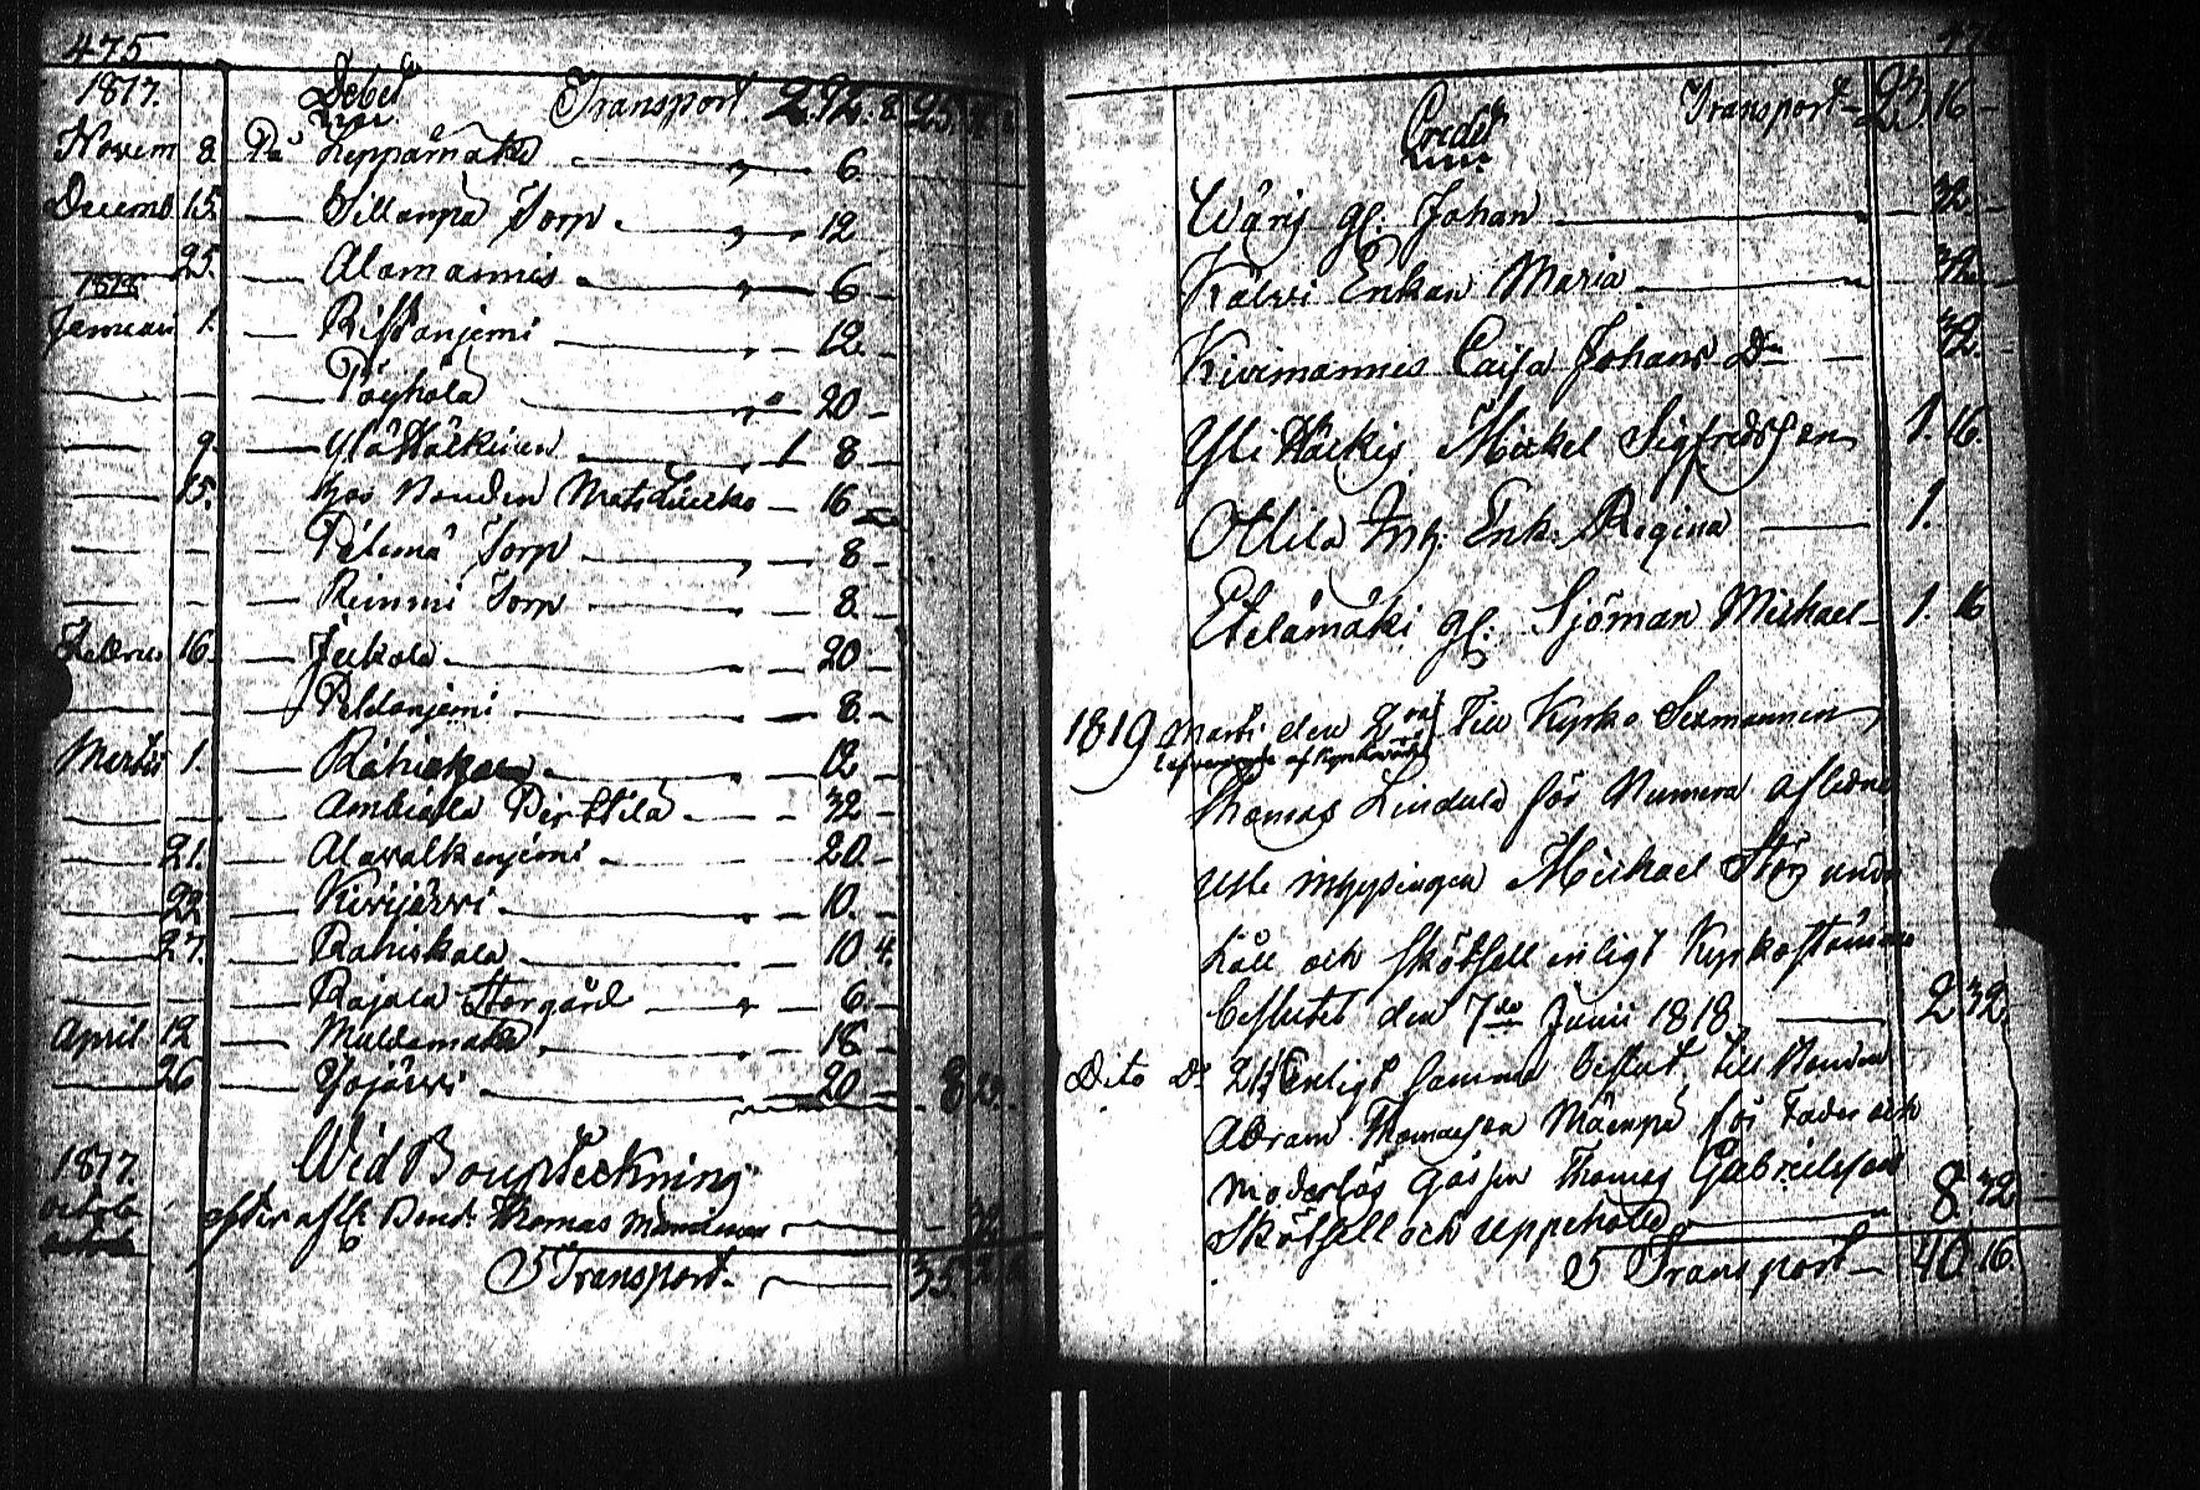 475
1817. Debet Transport 2.92. 8. 25.
Novem 8. På Leppämäki 6.
Decemb 15. Sillanpä Torp 12
25. Alamannis 6
1818
Januari 1. Ristanjemi 12.
Pöyhölä 20
9. Ylä 1 8
15. hos Bonden Mats 16
Torp 8
Torp 8.
Februa 16. Jeekola 20
Peldonjemi 8.
Martii 1. 12
Ambiala Perttilä 32
21. Alawalkenjemi 20.
22. Kirrijärwi 10.
27. Rahiskala 10 4.
Rajala Storgård 6.
April 12 Muldamäki 18.
26 Yojärwi 20 8
1817. Wid Boupteckning
efter afl. Bond. Thomas 32
Transport 35.
Credit Transport 23 16
gl. Johan 32.
Enkan Maria 32
Kivimannis Caisa Johans Dr 32.
Yli Mickel Sigfredsson 1. 16.
Ottila Inh. Enk. Regina 1.
Etelämäki gl. Sjöman Michael 1. 16
1819 Marti den 2 Till Kyrko Sexmannen
Thomas Lindula för Numera Aflidne
usle inhysingen Michael Störg under
håll och skötsell enligt Kyrkostämmo
beslutet den 7de Junii 1818. 2 32
Dito Do 21 Enligt samma beslut, till Bonden
Abram Thomasson för Fader och
moderlös gåssen Thomas Gabrielsson
Skötsell och uppehälle 8. 32
Transport 40 16